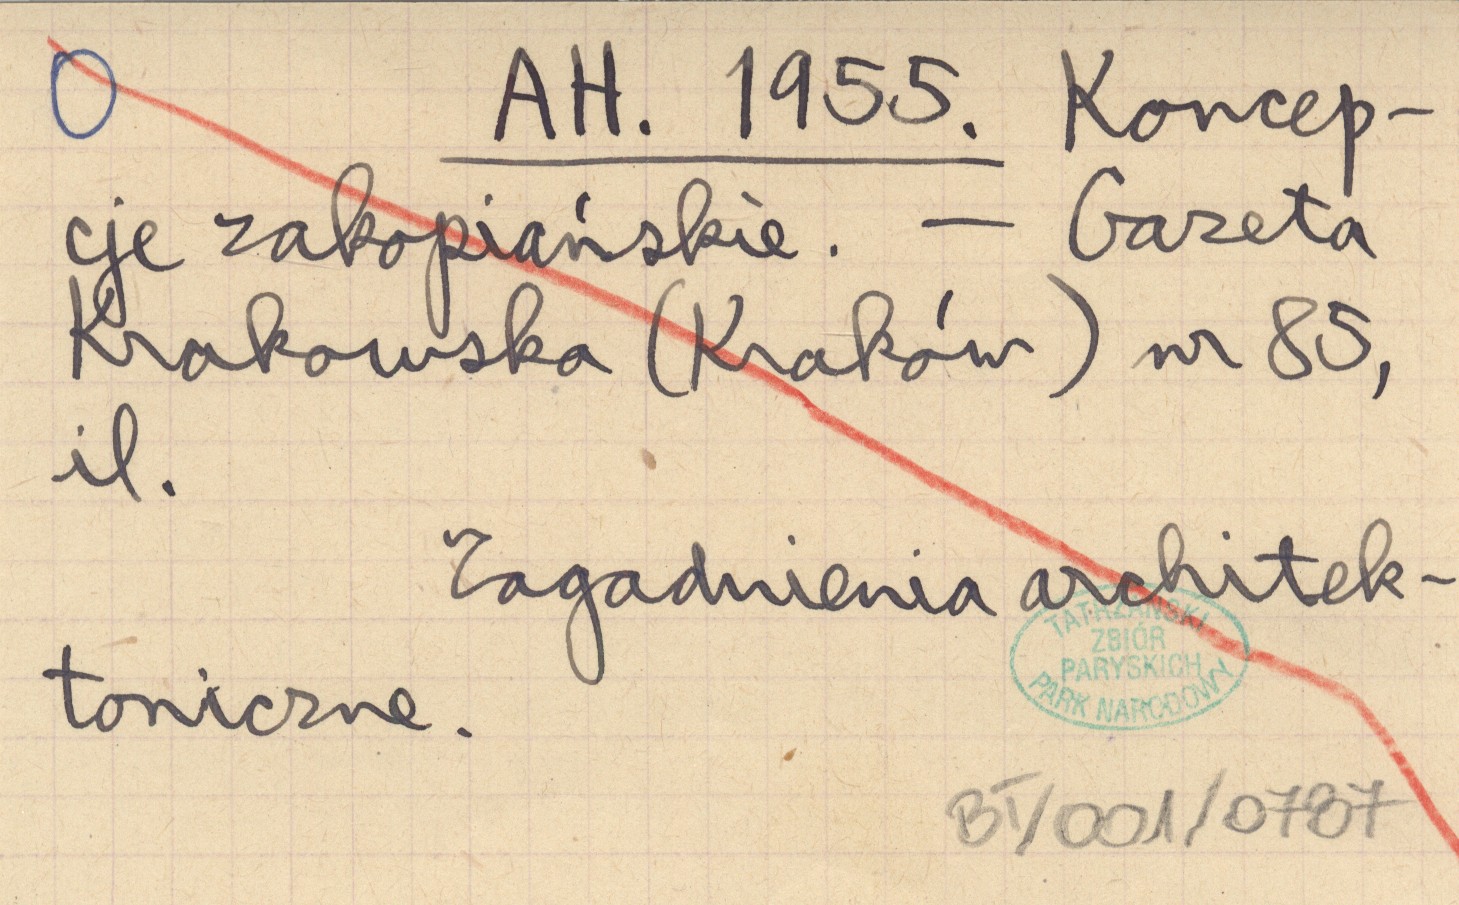 O AH. 1955. Koncep-
cje zakopiańskie. — Gazeta
Krakowska (Kraków) nr 85,
il.
Zagadnienia architek-
toniczne.
TATRZAŃSKI
ZBIÓR
PARYSKICH
PARK NARODOWY
BT/001/0787